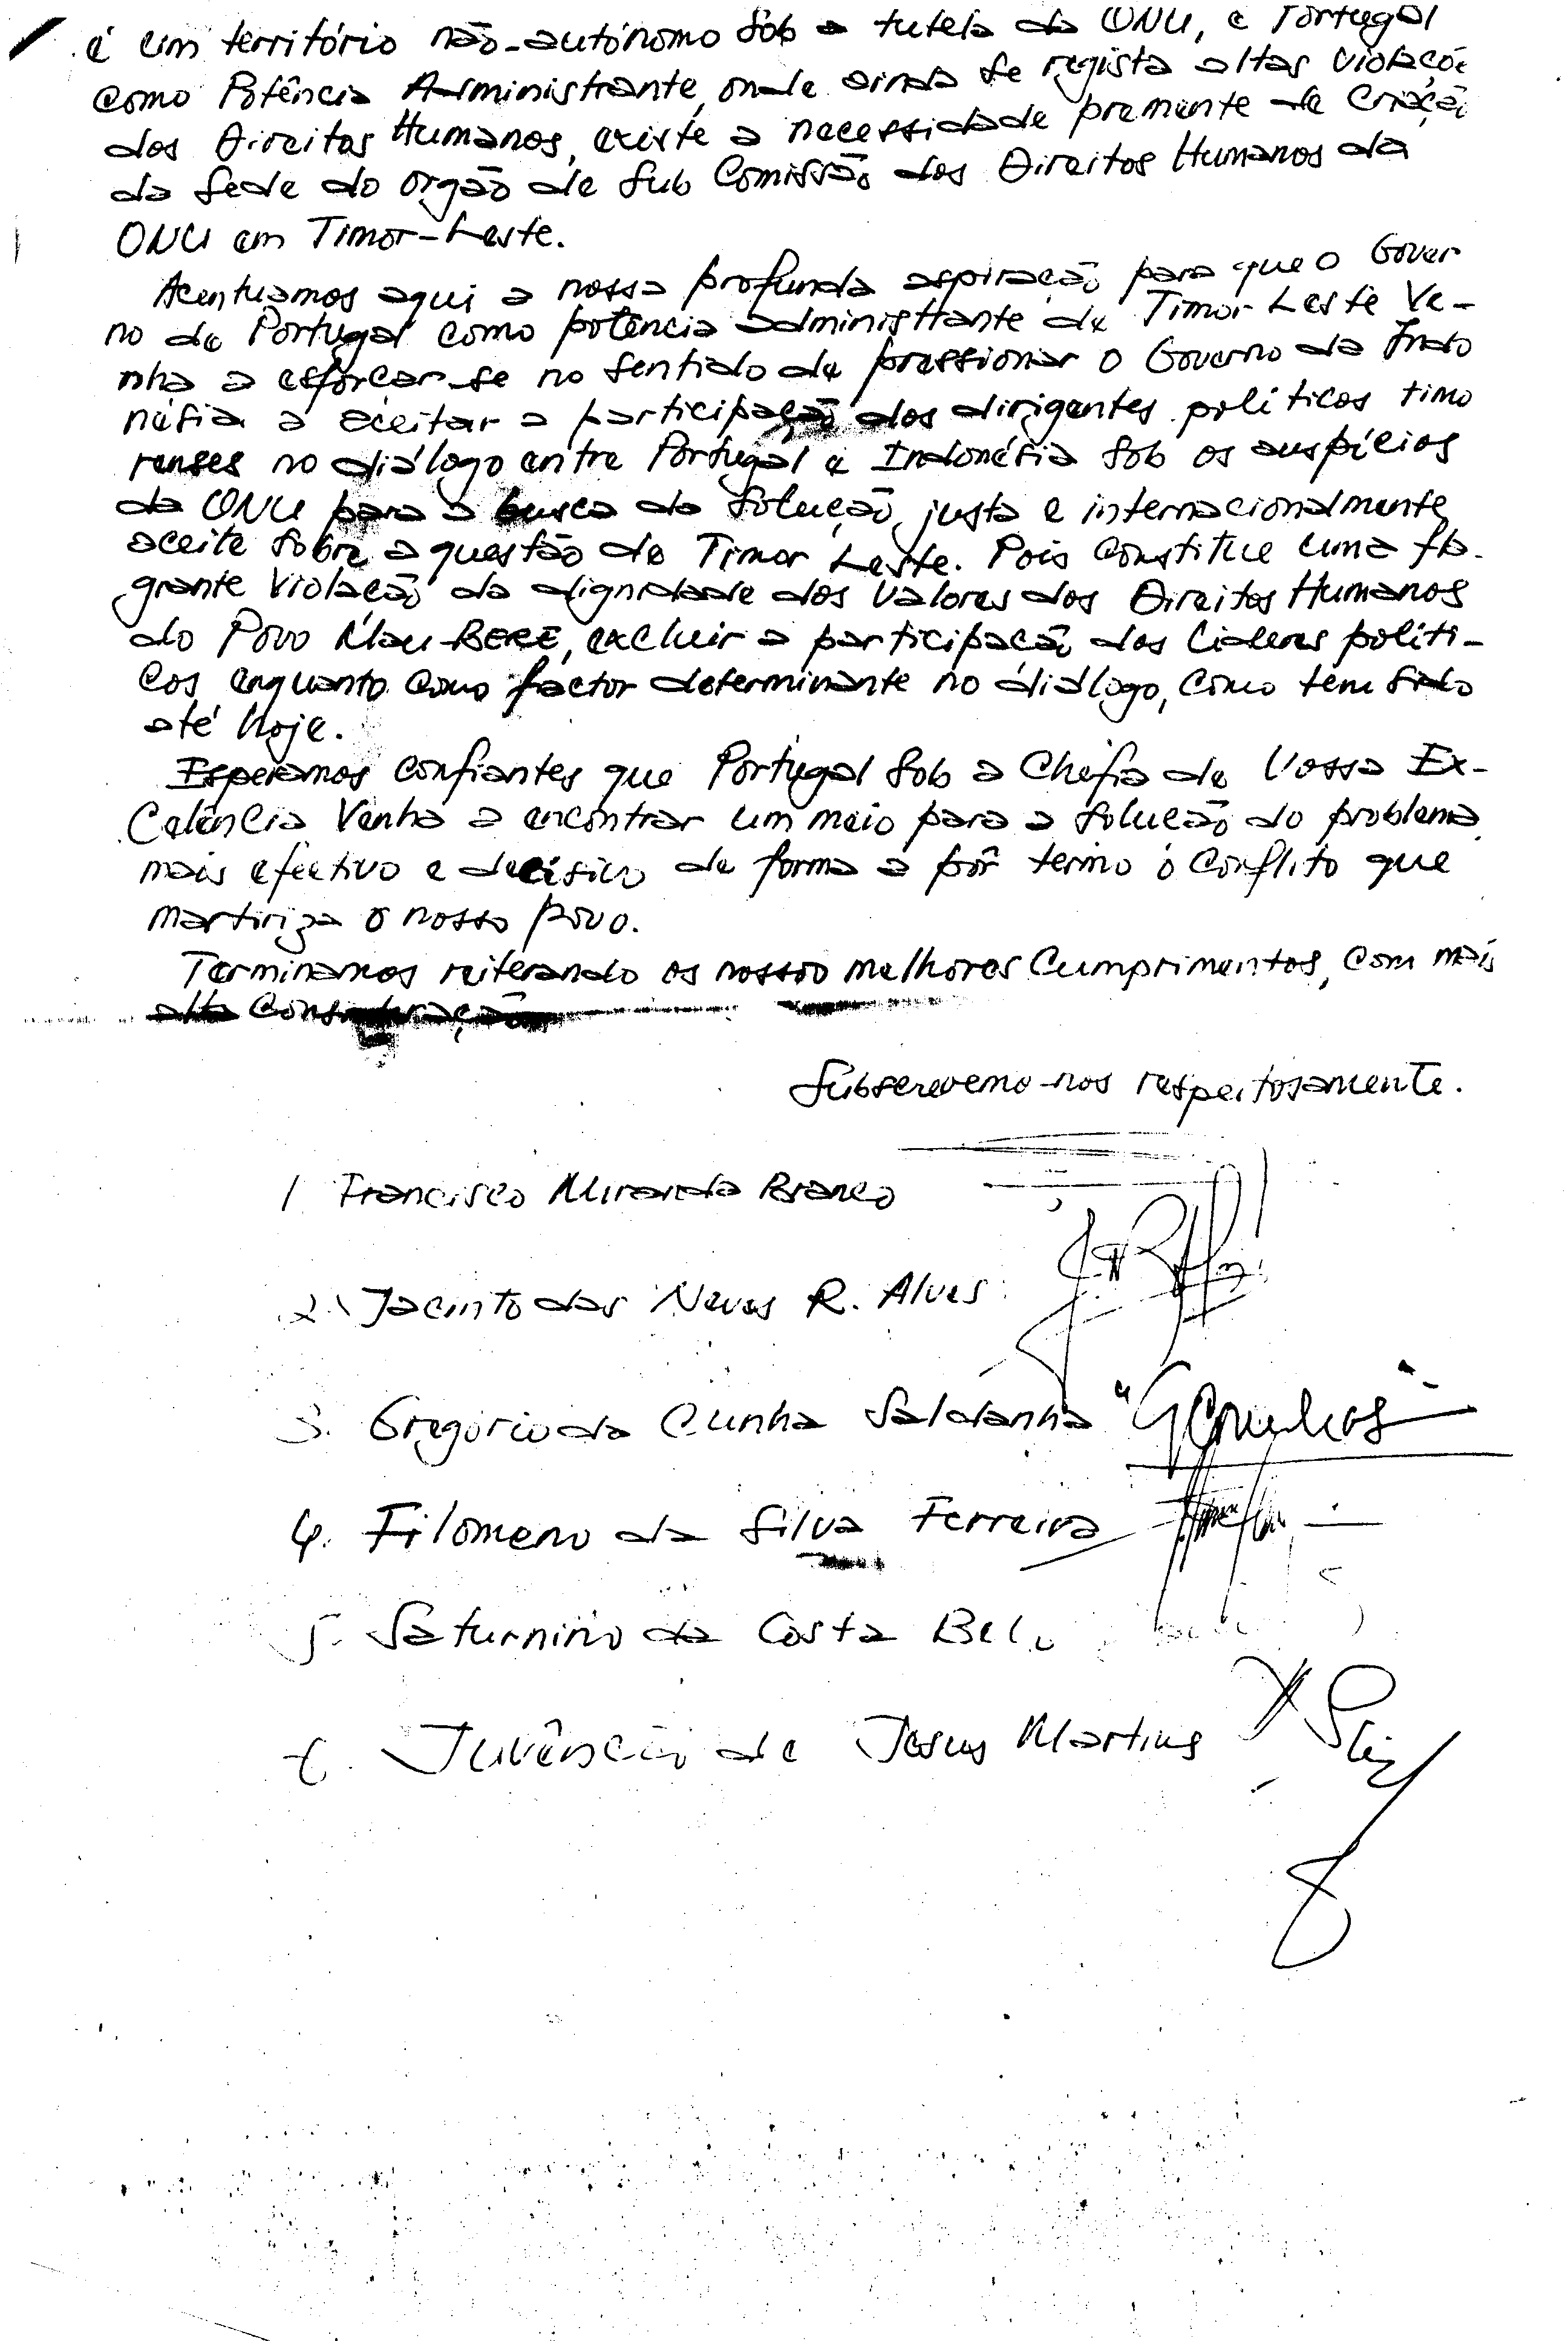 é um território não-autónomo sob a tutela da ONU, e Portugal
como Potência Administrante, onde ainda se regista altas violaçõe
dos Direitos Humanos, existe a necessidade premente de criação
da Sede do orgão de Sub Comissão dos Direitos Humanos da
ONU em Timor-Leste.
Acentuamos aqui a nossa profunda aspiração para que o Gover
no de Portugal como potência administrante de Timor Leste Ve-
nha a esforçar-se no sentido de pressionar o Governo da Indo
nésia a aceitar a participação dos dirigentes políticos timo
renses no diálogo entre Portugal e Indonésia sob os auspícios
da ONU para a busca da solução, justa e internacionalmente
aceite sobre a questão de Timor Leste. Pois constitue uma fla-
grante violação da dignidade dos valores dos Direitos Humanos
do Povo Mau-BERE, excluir a participação dos lideres políti-
cos enquanto como factor determinante no diálogo, como tem sido
até hoje.
Esperamos confiantes que Portugal sob a Chefia de Vossa Ex-
Celência Venha a encontrar um meio para a solução do problema
mais efectivo e decisivo de forma a pôr termo ó conflito que
martiriza o nosso povo.
Terminamos reiterando os nossos melhores cumprimentos, com mais
alta consideração
Subscrevemo-nos respeitosamente.
1 Francisco Miranda Branco
2. Jacinto das Neves R. Alves
3. Gregório da Cunha Saldanha
4. Filomeno da Silva Ferreira
5. Saturnino da Costa Belo
6. Juvêncio de Jesus Martins